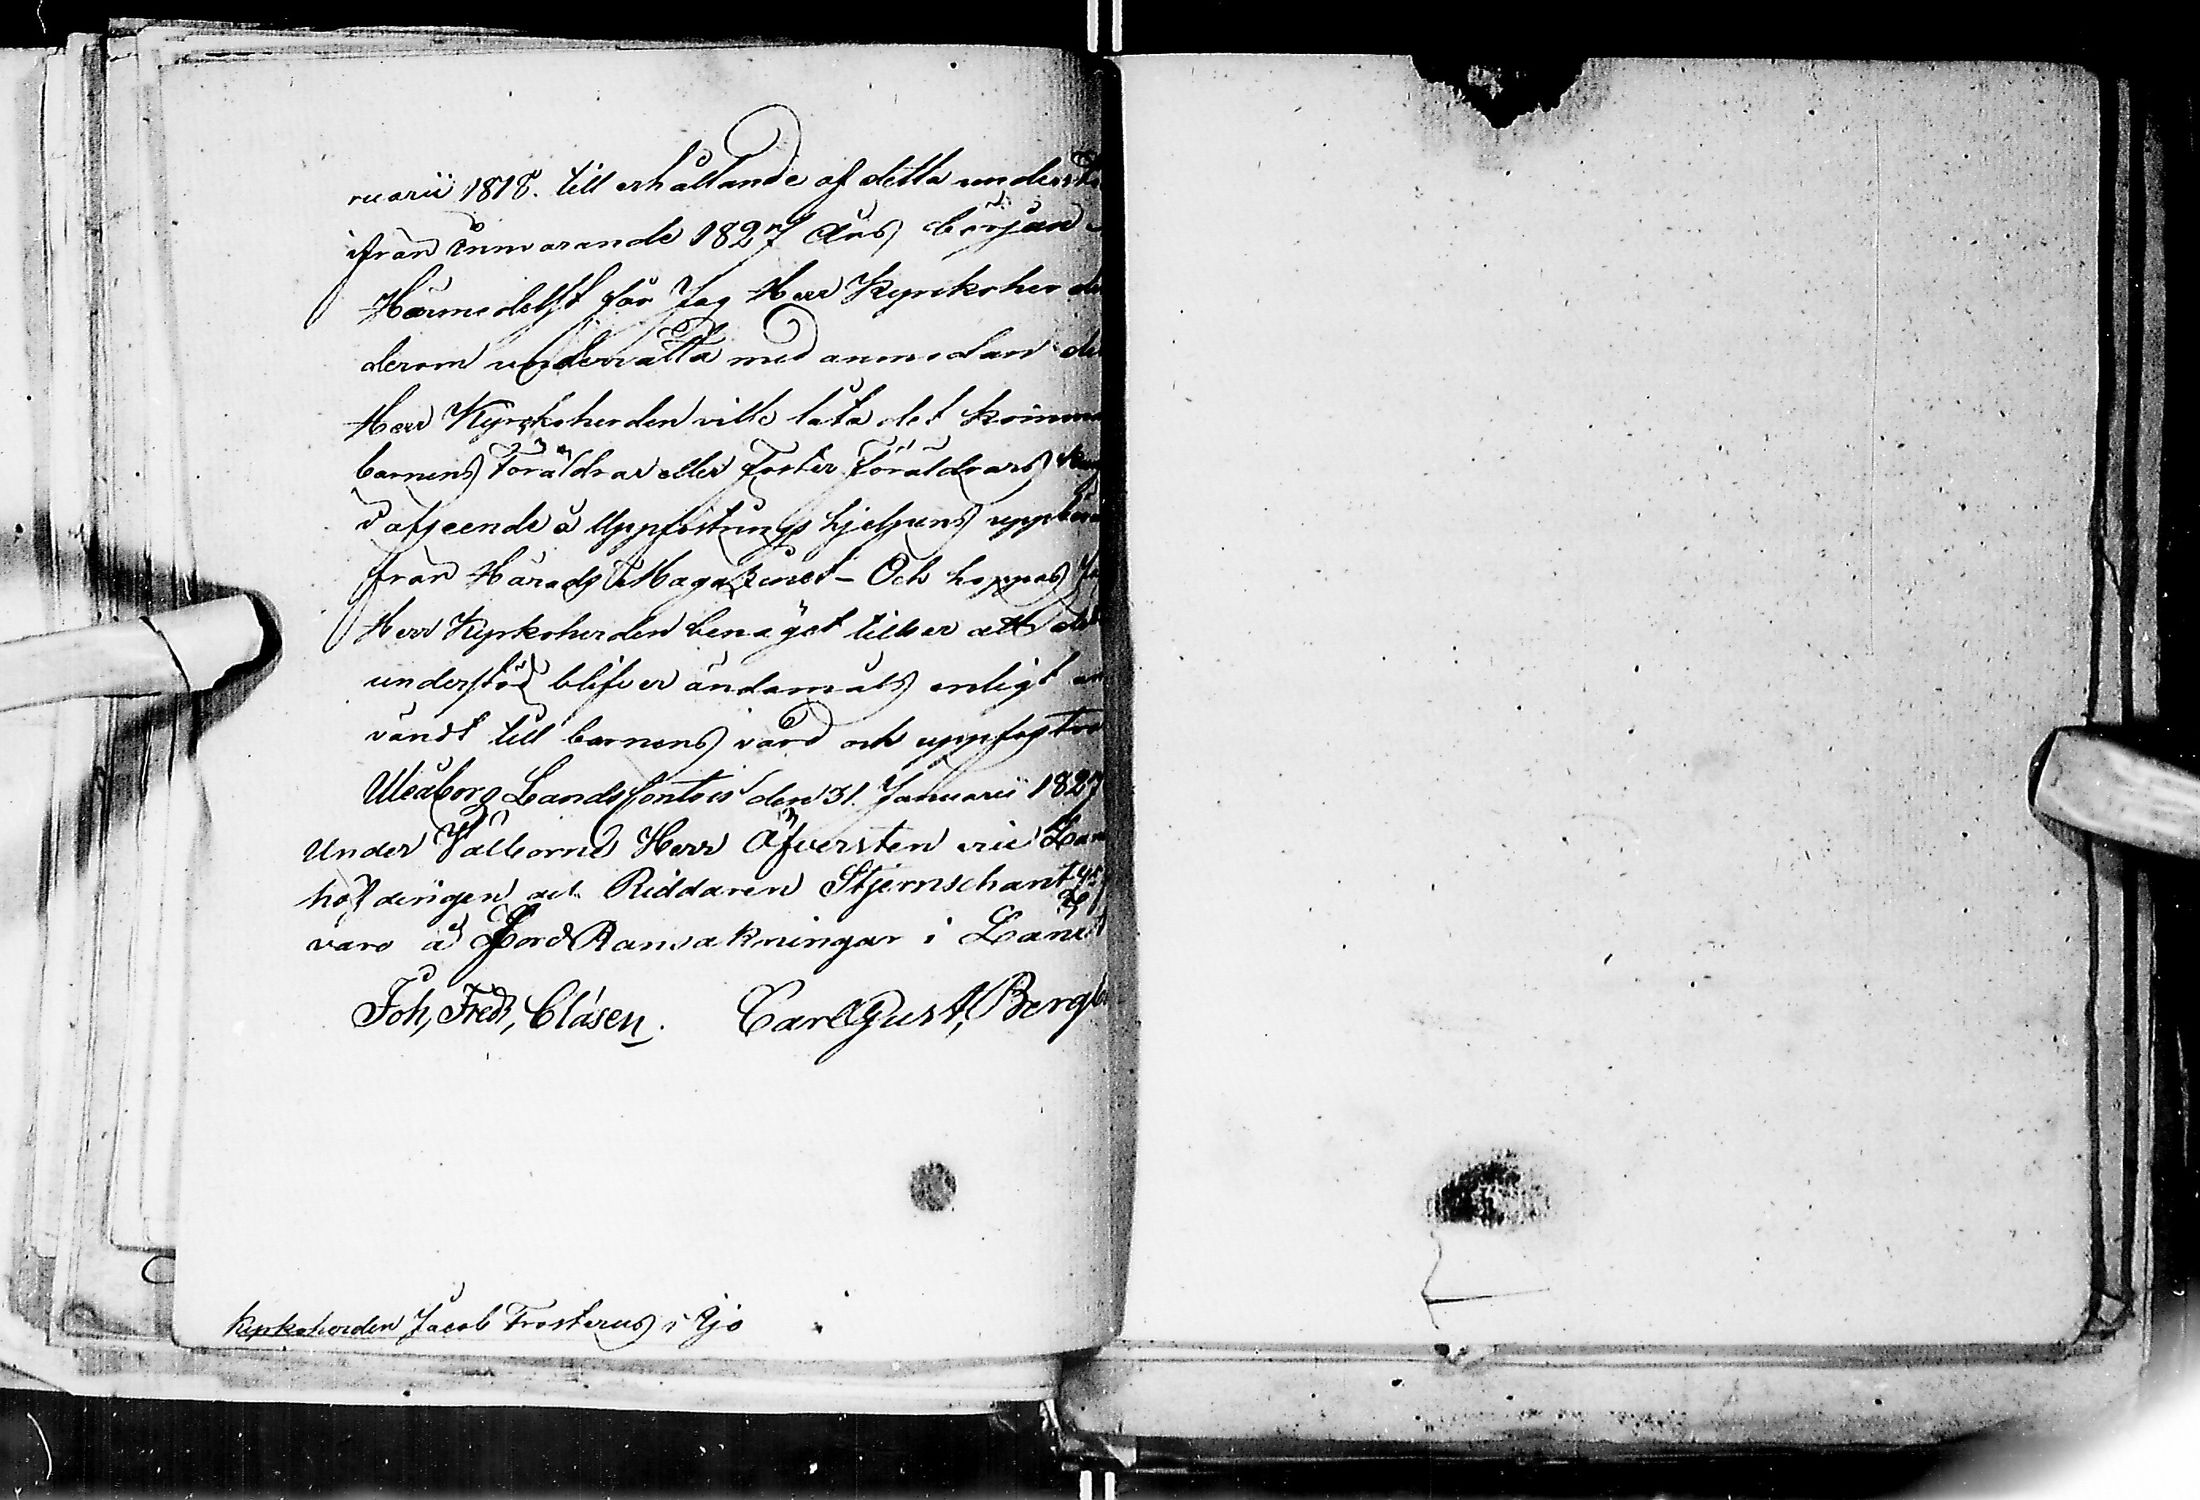 ruarii 1818. till erhållande af detta underst
ifrån innevarande 1827 Års början
Härmedelst får Jag Herr Kyrkoherde
derom underrätta med anmodan det
Herr Kyrkoherden ville låta det komma
barnens Föräldrar eller Foster Föräldrars
i afseende å Uppfostrings hjelpens uppbär
från Härads Magazinet - Och hoppas Ja
Herr Kyrkoherden benäget tillser att det
understöd blifver ändamåls enligt an
vändt till barnens vård och uppfostra
Uleåborg Lands Contoir den 31. Januarii 1827
Under Välborne Herr Öfversten och Lan
höfdingen och Riddaren Stjernschantz
varo å Jord Ransakningar i Länet
Joh, Fredr, Clásen. Carl Gust, Bergb
Kyrkoherden Jacob Frosterus i Ijo